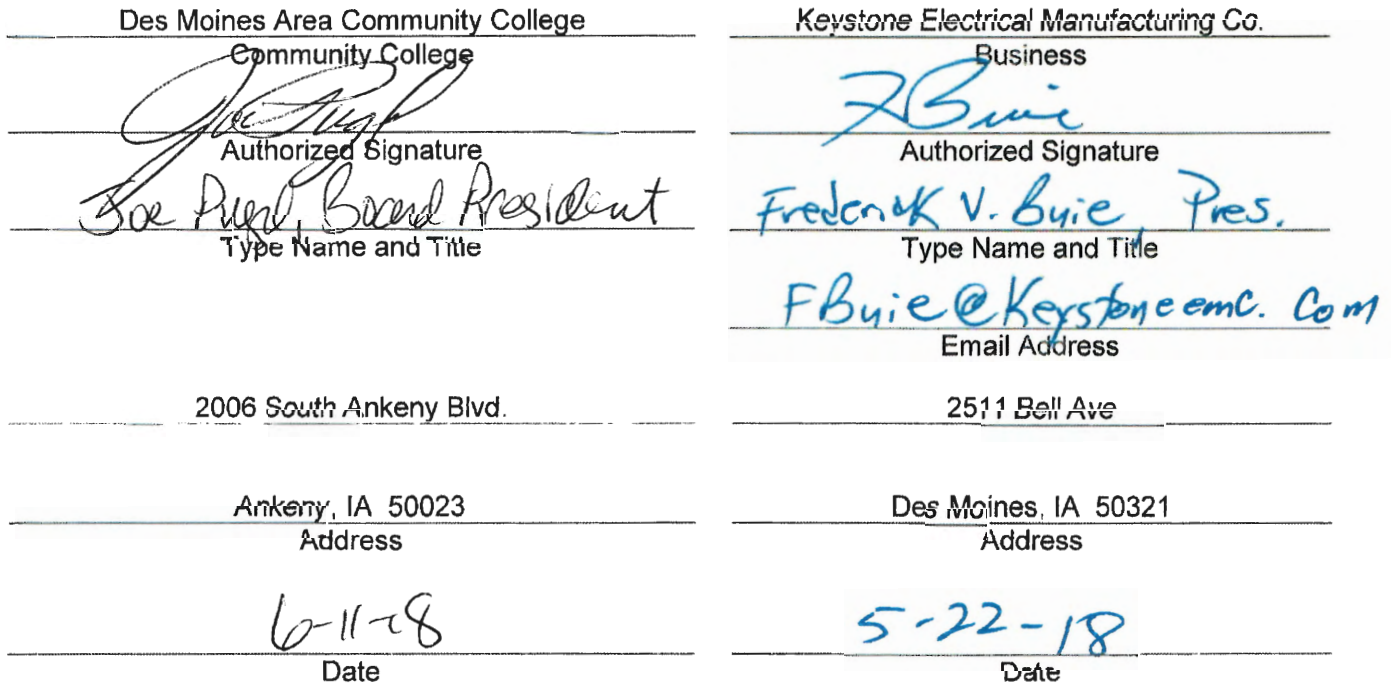 Des Moines Area Community College
Community College
Joe Pugel
Authorized Signature
Joe Pugel, Board President
Type Name and Title
2006 South Ankeny Blvd.
Ankeny, IA 50023
Address
6-11-18
Date
Keystone Electrical Manufacturing Co.
Business
F Buie
Authorized Signature
Frederick V. Buie, Pres.
Type Name and Title
FBuie@Keystoneemc.com
Email Address
2511 Bell Ave
Des Moines, IA 50321
Address
5-22-18
Date